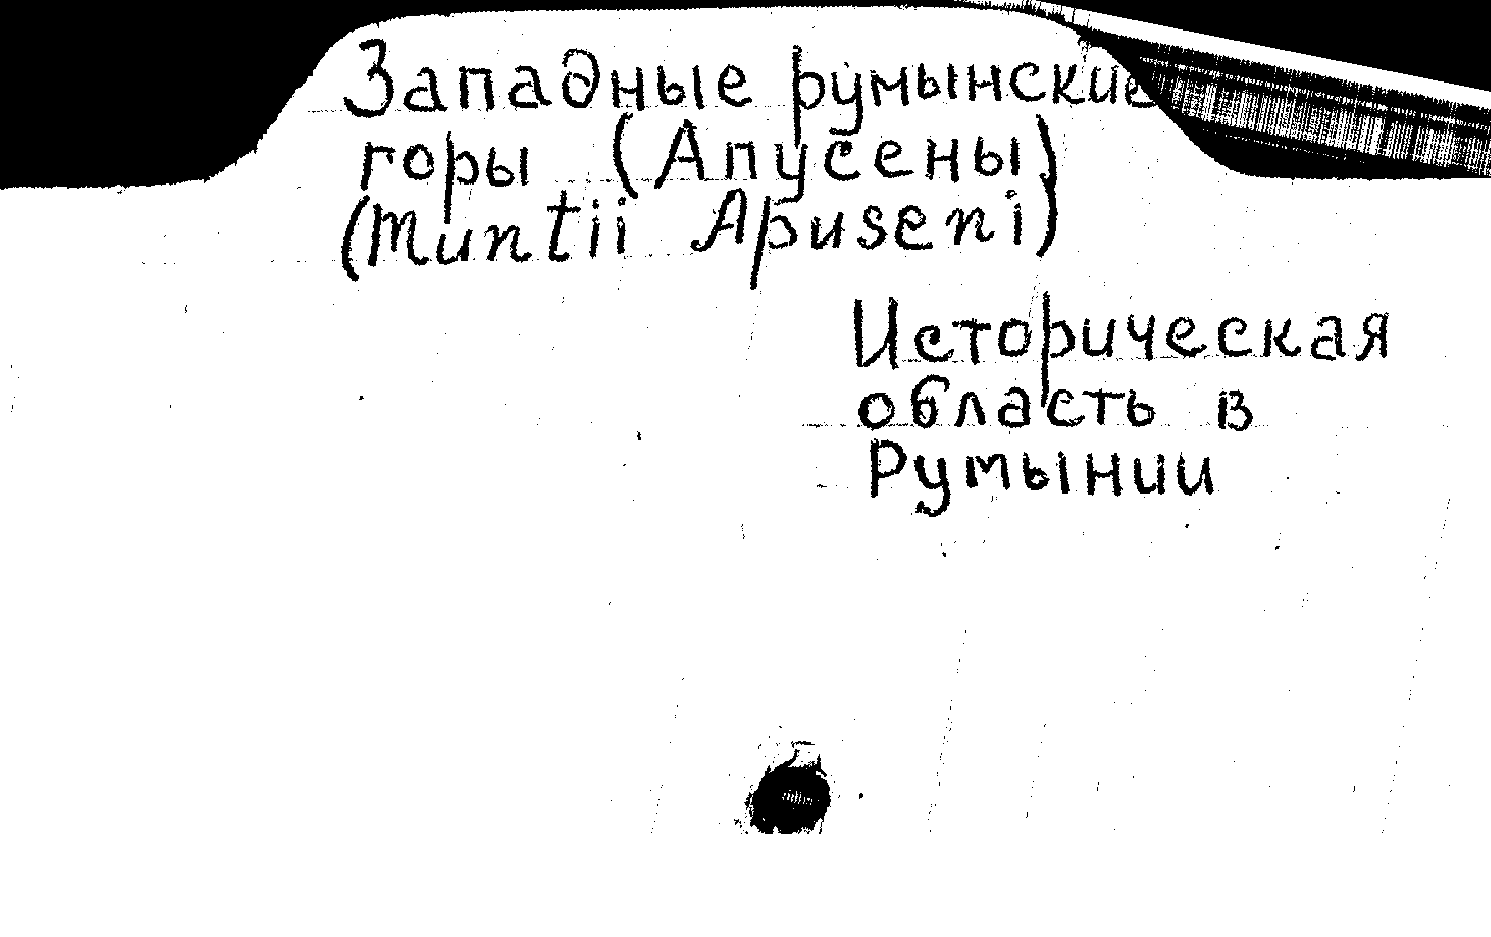 Западные румынские
горы (Апусены)
(Muntii Apuseni)
Историческая
область в
Румынии